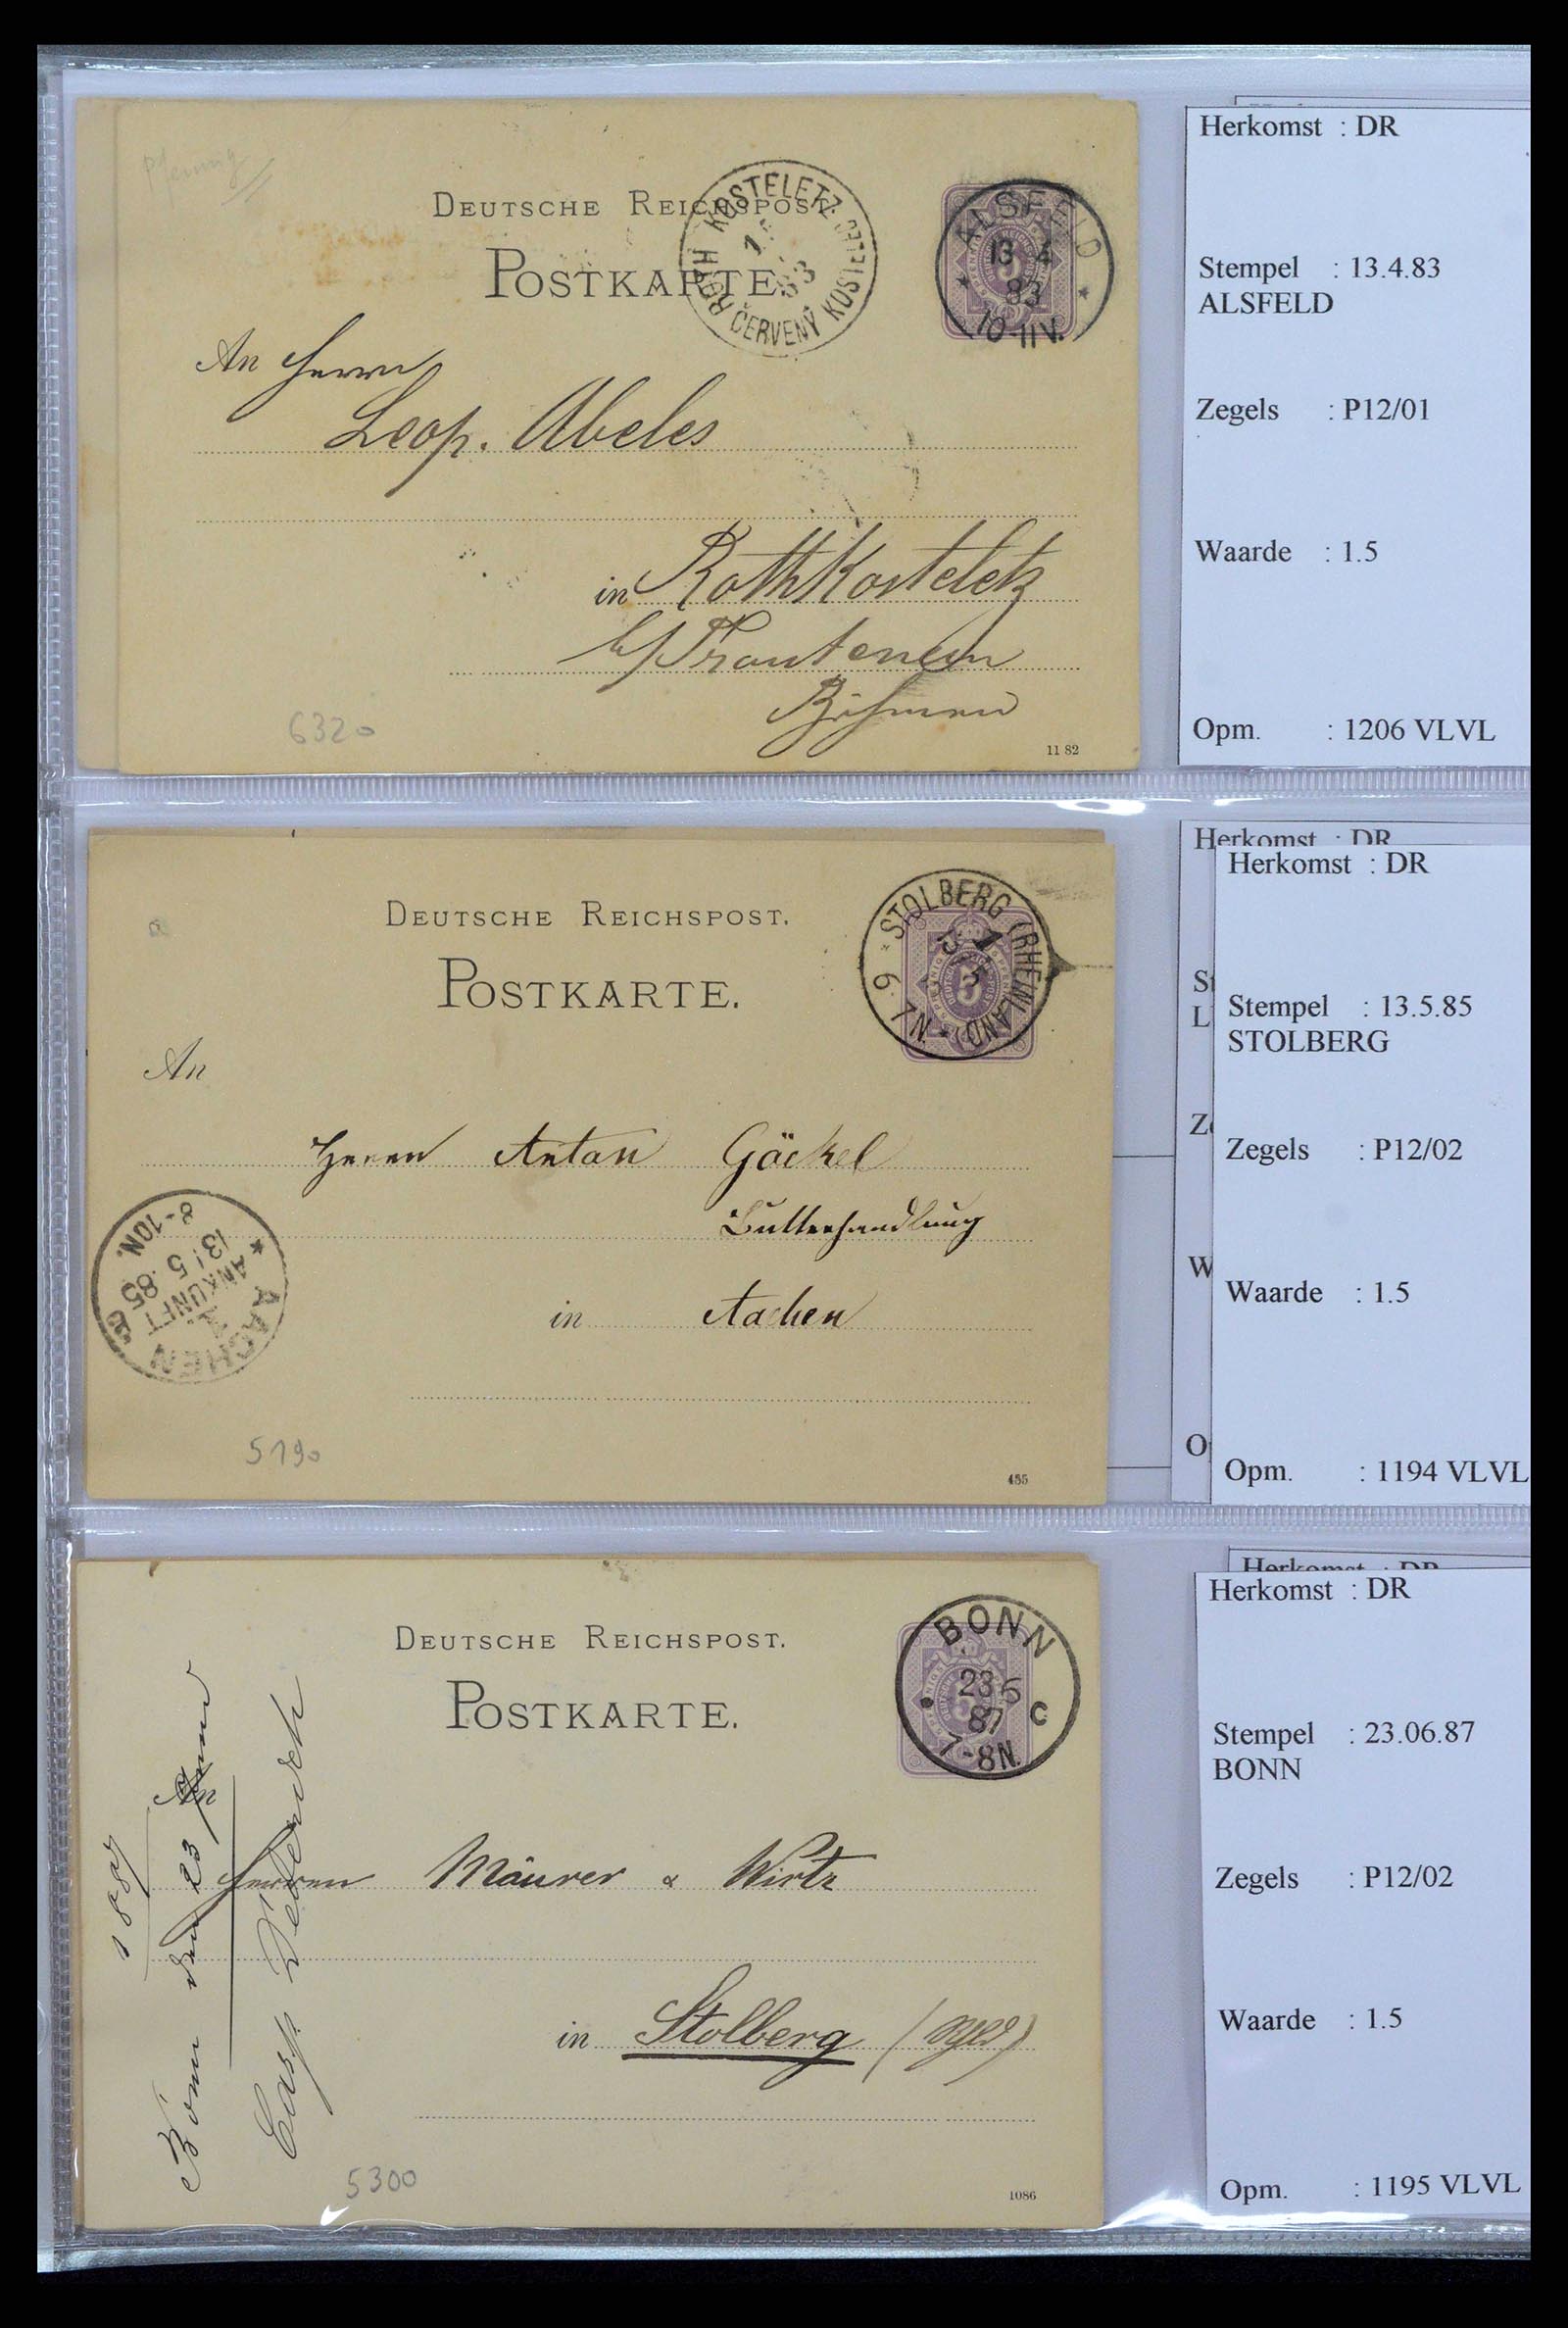 Pfennig
DEUTSCHE REICHSPOST.
POSTKARTE.
ROTH KOSTELETZ
ČERVENÝ KOSTELEC
83
ALSFELD
13 4
83
10-11V.
An Herrn
Leop. Abeles
in Rothkosteletz
b/Trautenau
Böhmen
6320
11 82
Herkomst : DR
Stempel : 13.4.83
ALSFELD
Zegels : P12/01
Waarde : 1.5
Opm. : 1206 VLVL
DEUTSCHE REICHSPOST.
POSTKARTE.
STOLBERG (RHEINLAND)
N7-9
An
Herrn Anton Göckel
Butterhandlung
in Aachen
AACHEN
1
ANKUNFT
13 5 85
8-10N.
5190
485
Herkomst : DR
Herkomst : DR
Stempel : 13.5.85
STOLBERG
Zegels : P12/02
Waarde : 1.5
Opm. : 1194 VLVL
DEUTSCHE REICHSPOST.
POSTKARTE.
BONN
23 6
87
C
7-8N.
An
Herren Mäurer & Wirtz
in Stolberg
Bonn den 23 Juni
1887
Casp
5300
1086
Herkomst : DR
Herkomst : DR
Stempel : 23.06.87
BONN
Zegels : P12/02
Waarde : 1.5
Opm. : 1195 VLVL